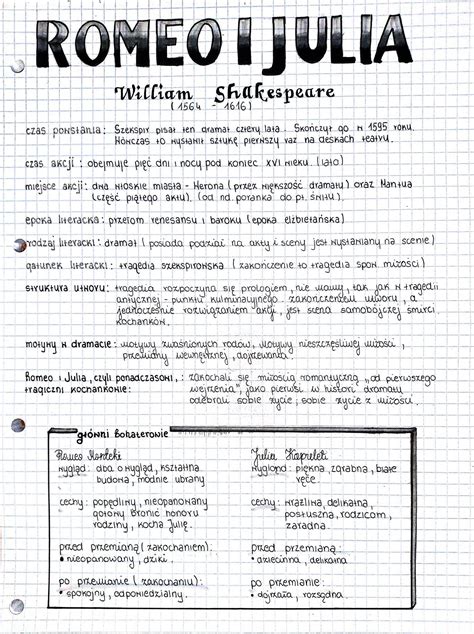 ROMEO I JULIA
William Shakespeare
(1564 - 1616)
czas powstania: Szekspir pisał ten dramat cztery lata. Skończył go w 1595 roku.
Wówczas to wystawił sztukę pierwszy raz na deskach teatru.
czas akcji: obejmuje pięć dni i nocy pod koniec XVI wieku. (lato)
miejsce akcji: dwa włoskie miasta - Werona (przez większość dramatu) oraz Mantua
(część piątego aktu). (od nd. poranka do pt. świtu)
epoka literacka: przełom renesansu i baroku (epoka elżbietańska)
rodzaj literacki: dramat (posiada podział na akty i sceny jest wystawiany na scenie)
gatunek literacki: tragedia szekspirowska (zakończenie to tragedia spow. miłości)
struktura utworu: tragedia rozpoczyna się prologiem, nie mamy, tak jak w tragedii
antycznej - punktu kulminacyjnego. zakończeniem utworu, a
jednocześnie rozwiązaniem akcji, jest scena samobójczej śmierci
kochanków.
motywy w dramacie: motywy zwaśnionych rodów, motywy nieszczęśliwej miłości,
przemiany wewnętrznej, dojrzewania.
Romeo i Julia, czyli ponadczasowi,: zakochali się miłością romantyczną „od pierwszego
tragiczni kochankowie: wejrzenia", jako pierwsi w historii dramatu
odebrali sobie życie; sobie życie z miłości.
główni bohaterowie
Romeo Monteki
wygląd: dba o wygląd, kształtna
budowa, modnie ubrany
cechy: popędliwy, nieopanowany
gotowy bronić honoru
rodziny, kocha Julię.
przed przemianą (zakochaniem):
• nieopanowany, dziki.
po przemianie (zakochaniu):
• spokojny, odpowiedzialny.
Julia Kapuleti
wygląd: piękna, zgrabna, białe
ręce.
cechy: wrażliwa, delikatna,
posłuszna, rodzicom,
zaradna.
przed przemianą:
• dziecinna, delikatna
po przemianie:
• dojrzała, rozsądna.